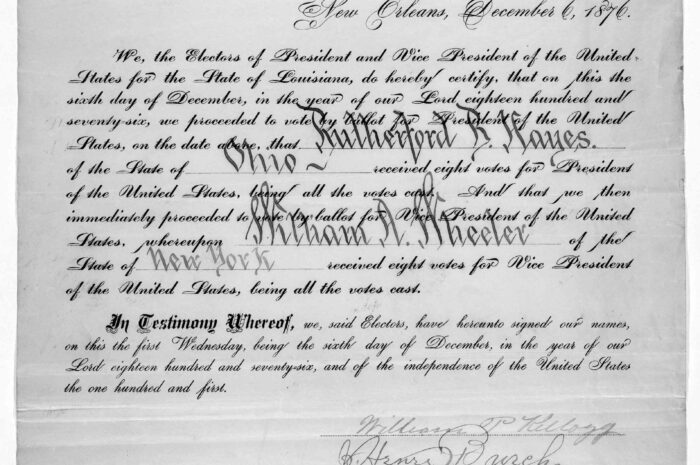 New Orleans, December 6, 1876.
We, the Electors of President and Vice President of the United
States for the State of Louisiana, do hereby certify, that on this the
sixth day of December, in the year of our Lord eighteen hundred and
seventy-six, we proceeded to vote by ballot for President of the United
States, on the date above, that Rutherford B. Hayes.
of the State of Ohio received eight votes for President
of the United States, being all the votes cast. And that we then
immediately proceeded to vote by ballot for Vice President of the United
States, whereupon William A. Wheeler of the
State of New York received eight votes for Vice President
of the United States, being all the votes cast.
In Testimony Whereof, we, said Electors, have hereunto signed our names,
on this the first Wednesday, being the sixth day of December, in the year of our
Lord eighteen hundred and seventy-six, and of the independence of the United States
the one hundred and first.
William P. Kellogg
J. Henri Burch